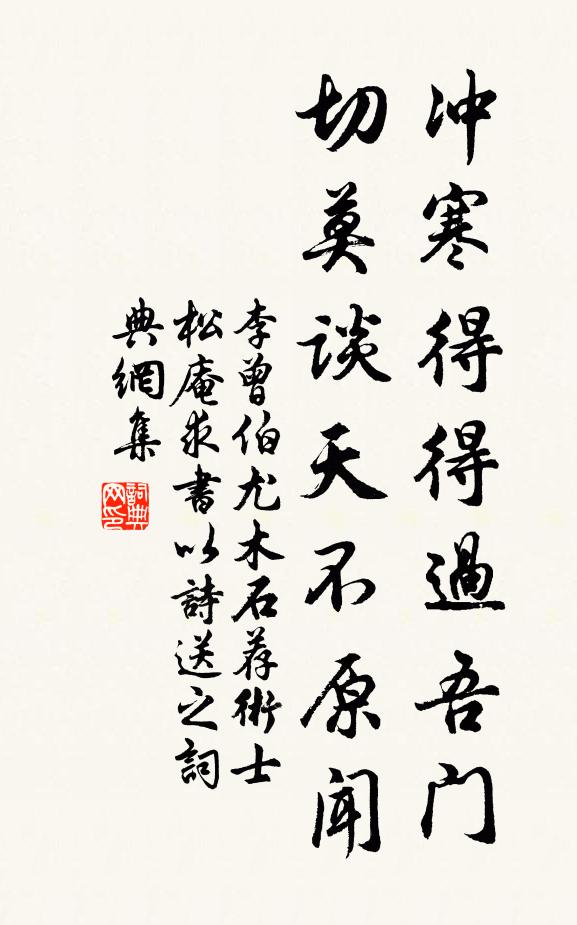 冲寒得得過吾门
切莫談天不原闻
李曾伯尤木石荐術士
松庵求書以詩送之詞
典網集
詞典网印